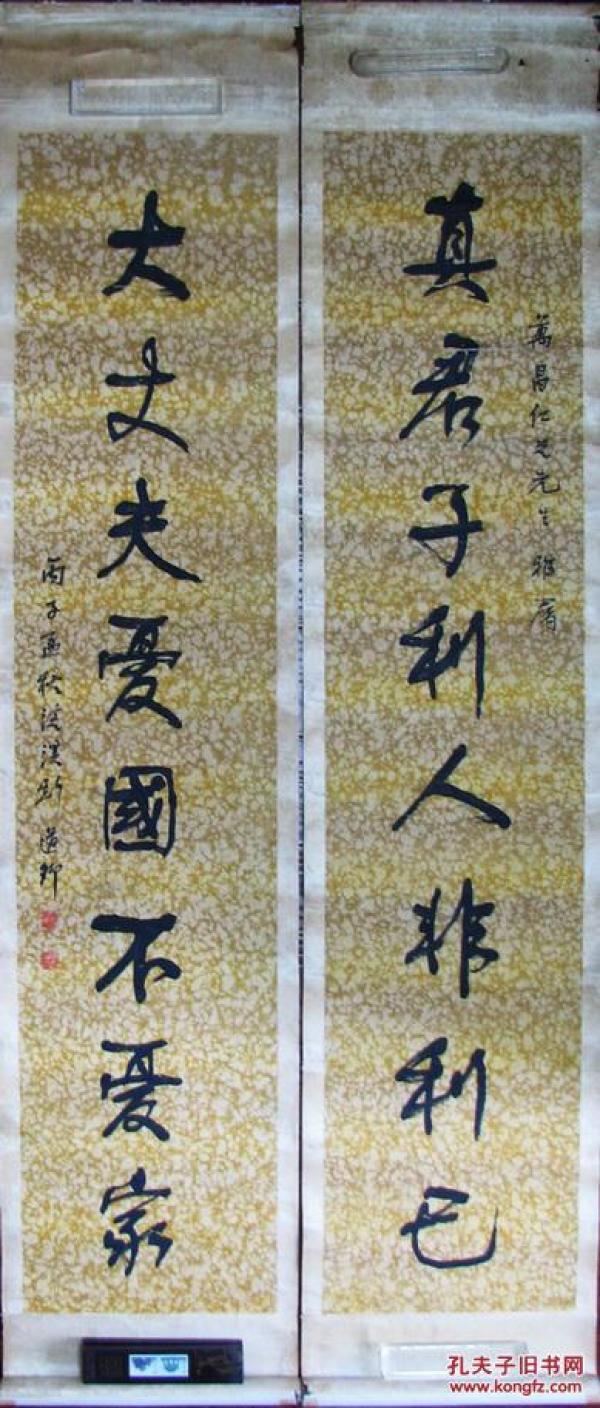 萬昌仁兄先生雅屬
真君子利人非利己
大丈夫憂國不憂家
丙子
孔夫子旧书网
www.kongfz.com